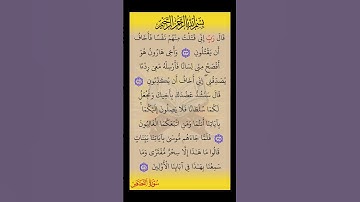 بسم الله الرحمن الرحيم
قَالَ رَبِّ إِنِّي قَتَلْتُ مِنْهُمْ نَفْسًا فَأَخَافُ
أَن يَقْتُلُونِ ٣٣ وَأَخِي هَارُونُ هُوَ
أَفْصَحُ مِنِّي لِسَانًا فَأَرْسِلْهُ مَعِيَ رِدْءًا
يُصَدِّقُنِي إِنِّي أَخَافُ أَن يُكَذِّبُونِ ٣٤
قَالَ سَنَشُدُّ عَضُدَكَ بِأَخِيكَ وَنَجْعَلُ
لَكُمَا سُلْطَانًا فَلَا يَصِلُونَ إِلَيْكُمَا
بِآيَاتِنَا أَنتُمَا وَمَنِ اتَّبَعَكُمَا الْغَالِبُونَ
٣٥ فَلَمَّا جَاءَهُم مُّوسَى بِآيَاتِنَا بَيِّنَاتٍ
قَالُوا مَا هَذَا إِلَّا سِحْرٌ مُّفْتَرًى وَمَا
سَمِعْنَا بِهَذَا فِي آبَائِنَا الْأَوَّلِينَ ٣٦
سورة القصص